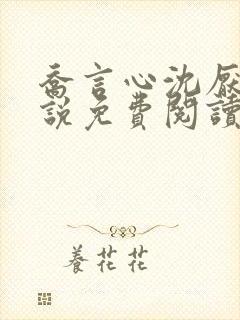 喬言心沈厭
說免費閱讀
養花花